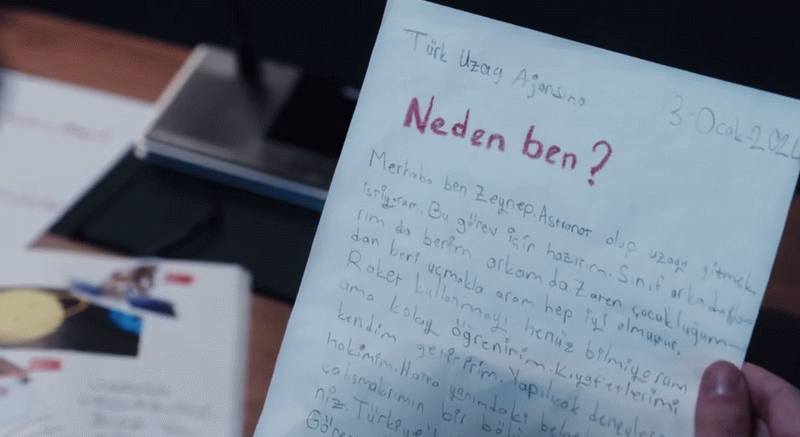 Türk Uzay Ajansına
3-Ocak-202
Neden ben?
Merhaba ben Zeynep. Astronot olup uzaya gitmek
istiyorum. Bu görev için hazırım. Sınıf arkadaşla
rım da benim arkamda. Zaren çocukluğum
dan beri uçmakla aram hep iyi olmuşur.
Roket kullanmayı henüz bilmiyorum
ama kolay öğrenirim. Kıyafetlerimi
kendim getiririm. Yapılcak deneylere
hakimim. Hatta yanımdaki
çalışmalarımın bir
niz. Türkiye'